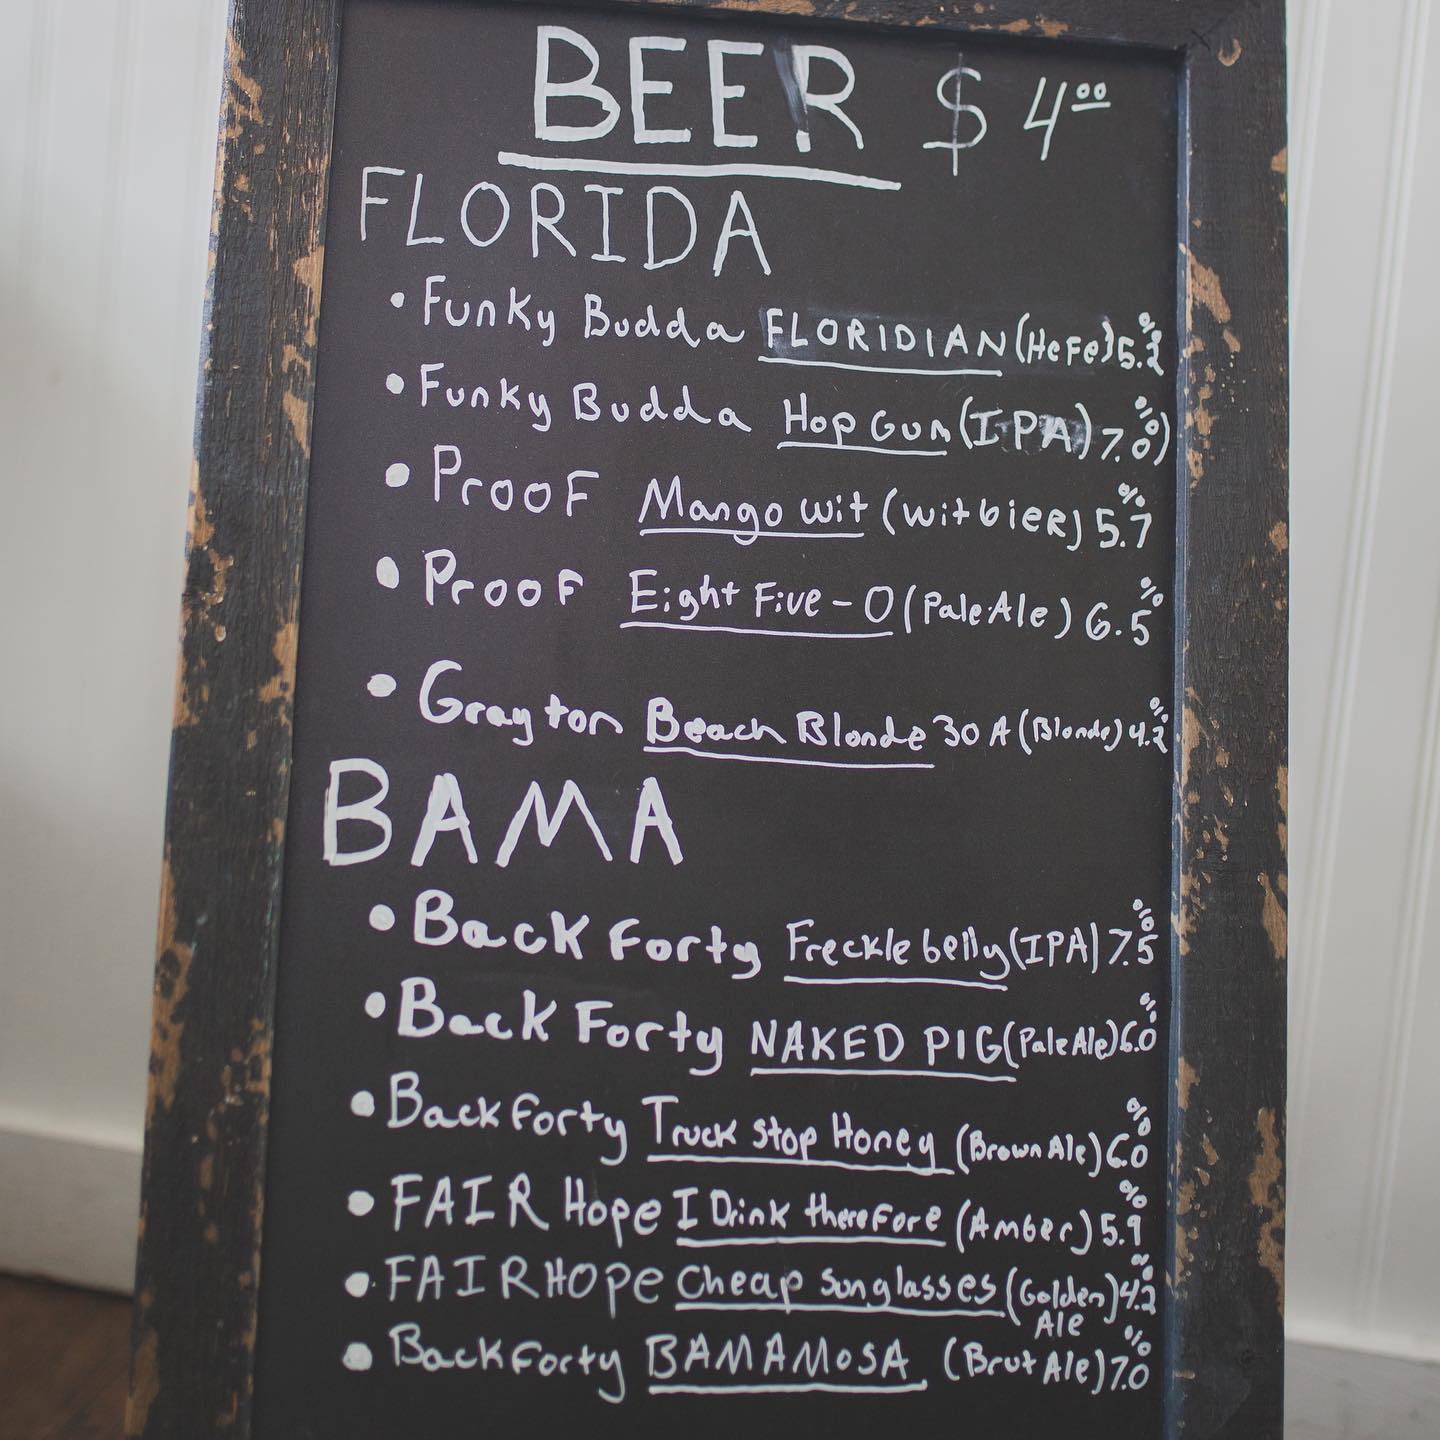 BEER $ 4.00
FLORIDA
• Funky Budda FLORIDIAN (Hefe) 5.2%
• Funky Budda Hop Gun (IPA) 7.0%)
• Proof Mango Wit (witbier) 5.7%
• Proof Eight Five-0 (Pale Ale) 6.5%
• Grayton Beach Blonde 30 A (Blonde) 4.2%
BAMA
• Back Forty Freckle belly (IPA) 7.5%
• Back Forty NAKED PIG (Pale Ale) 6.0%
• Back Forty Truck stop Honey (Brown Ale) 6.0%
• FAIR Hope I Drink therefore (Amber) 5.9%
• FAIRHOPE Cheap sunglasses (Golden Ale) 4.2%
• Back Forty BAMAMOSA (Brut Ale) 7.0%